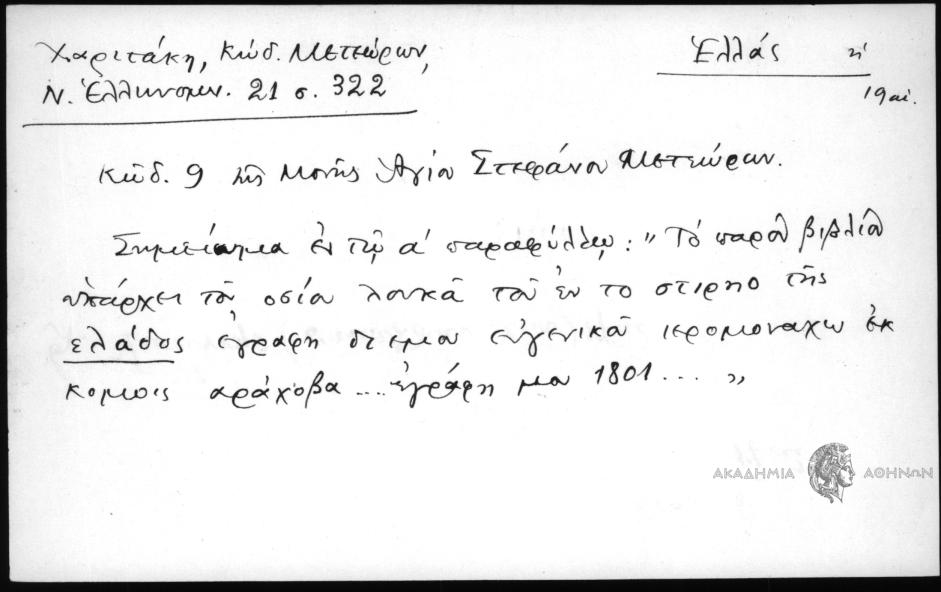 Χαριτάκη, Κώδ. Μετεώρων,
Ν. Ἑλληνομν. 21 σ. 322
Ἑλλάς ἡ
19 αἰ.
Κώδ. 9 τῆς Μονῆς Ἁγίου Στεφάνου Μετεώρων.
Σημείωμα ἐν τῷ α' παραφύλλῳ: "Τό παρὸν βιβλίον
ὑπάρχει τοῦ οσίου λουκᾶ τοῦ ἐν το στιρηο τῆς
ελάδος ἐγραφη δι εμου εὐγενικοῦ ιερομοναχω ἐκ
κομης αράχοβα .... ἐγράφη 1801 ... "
ΑΚΑΔΗΜΙΑ ΑΘΗΝΩΝ